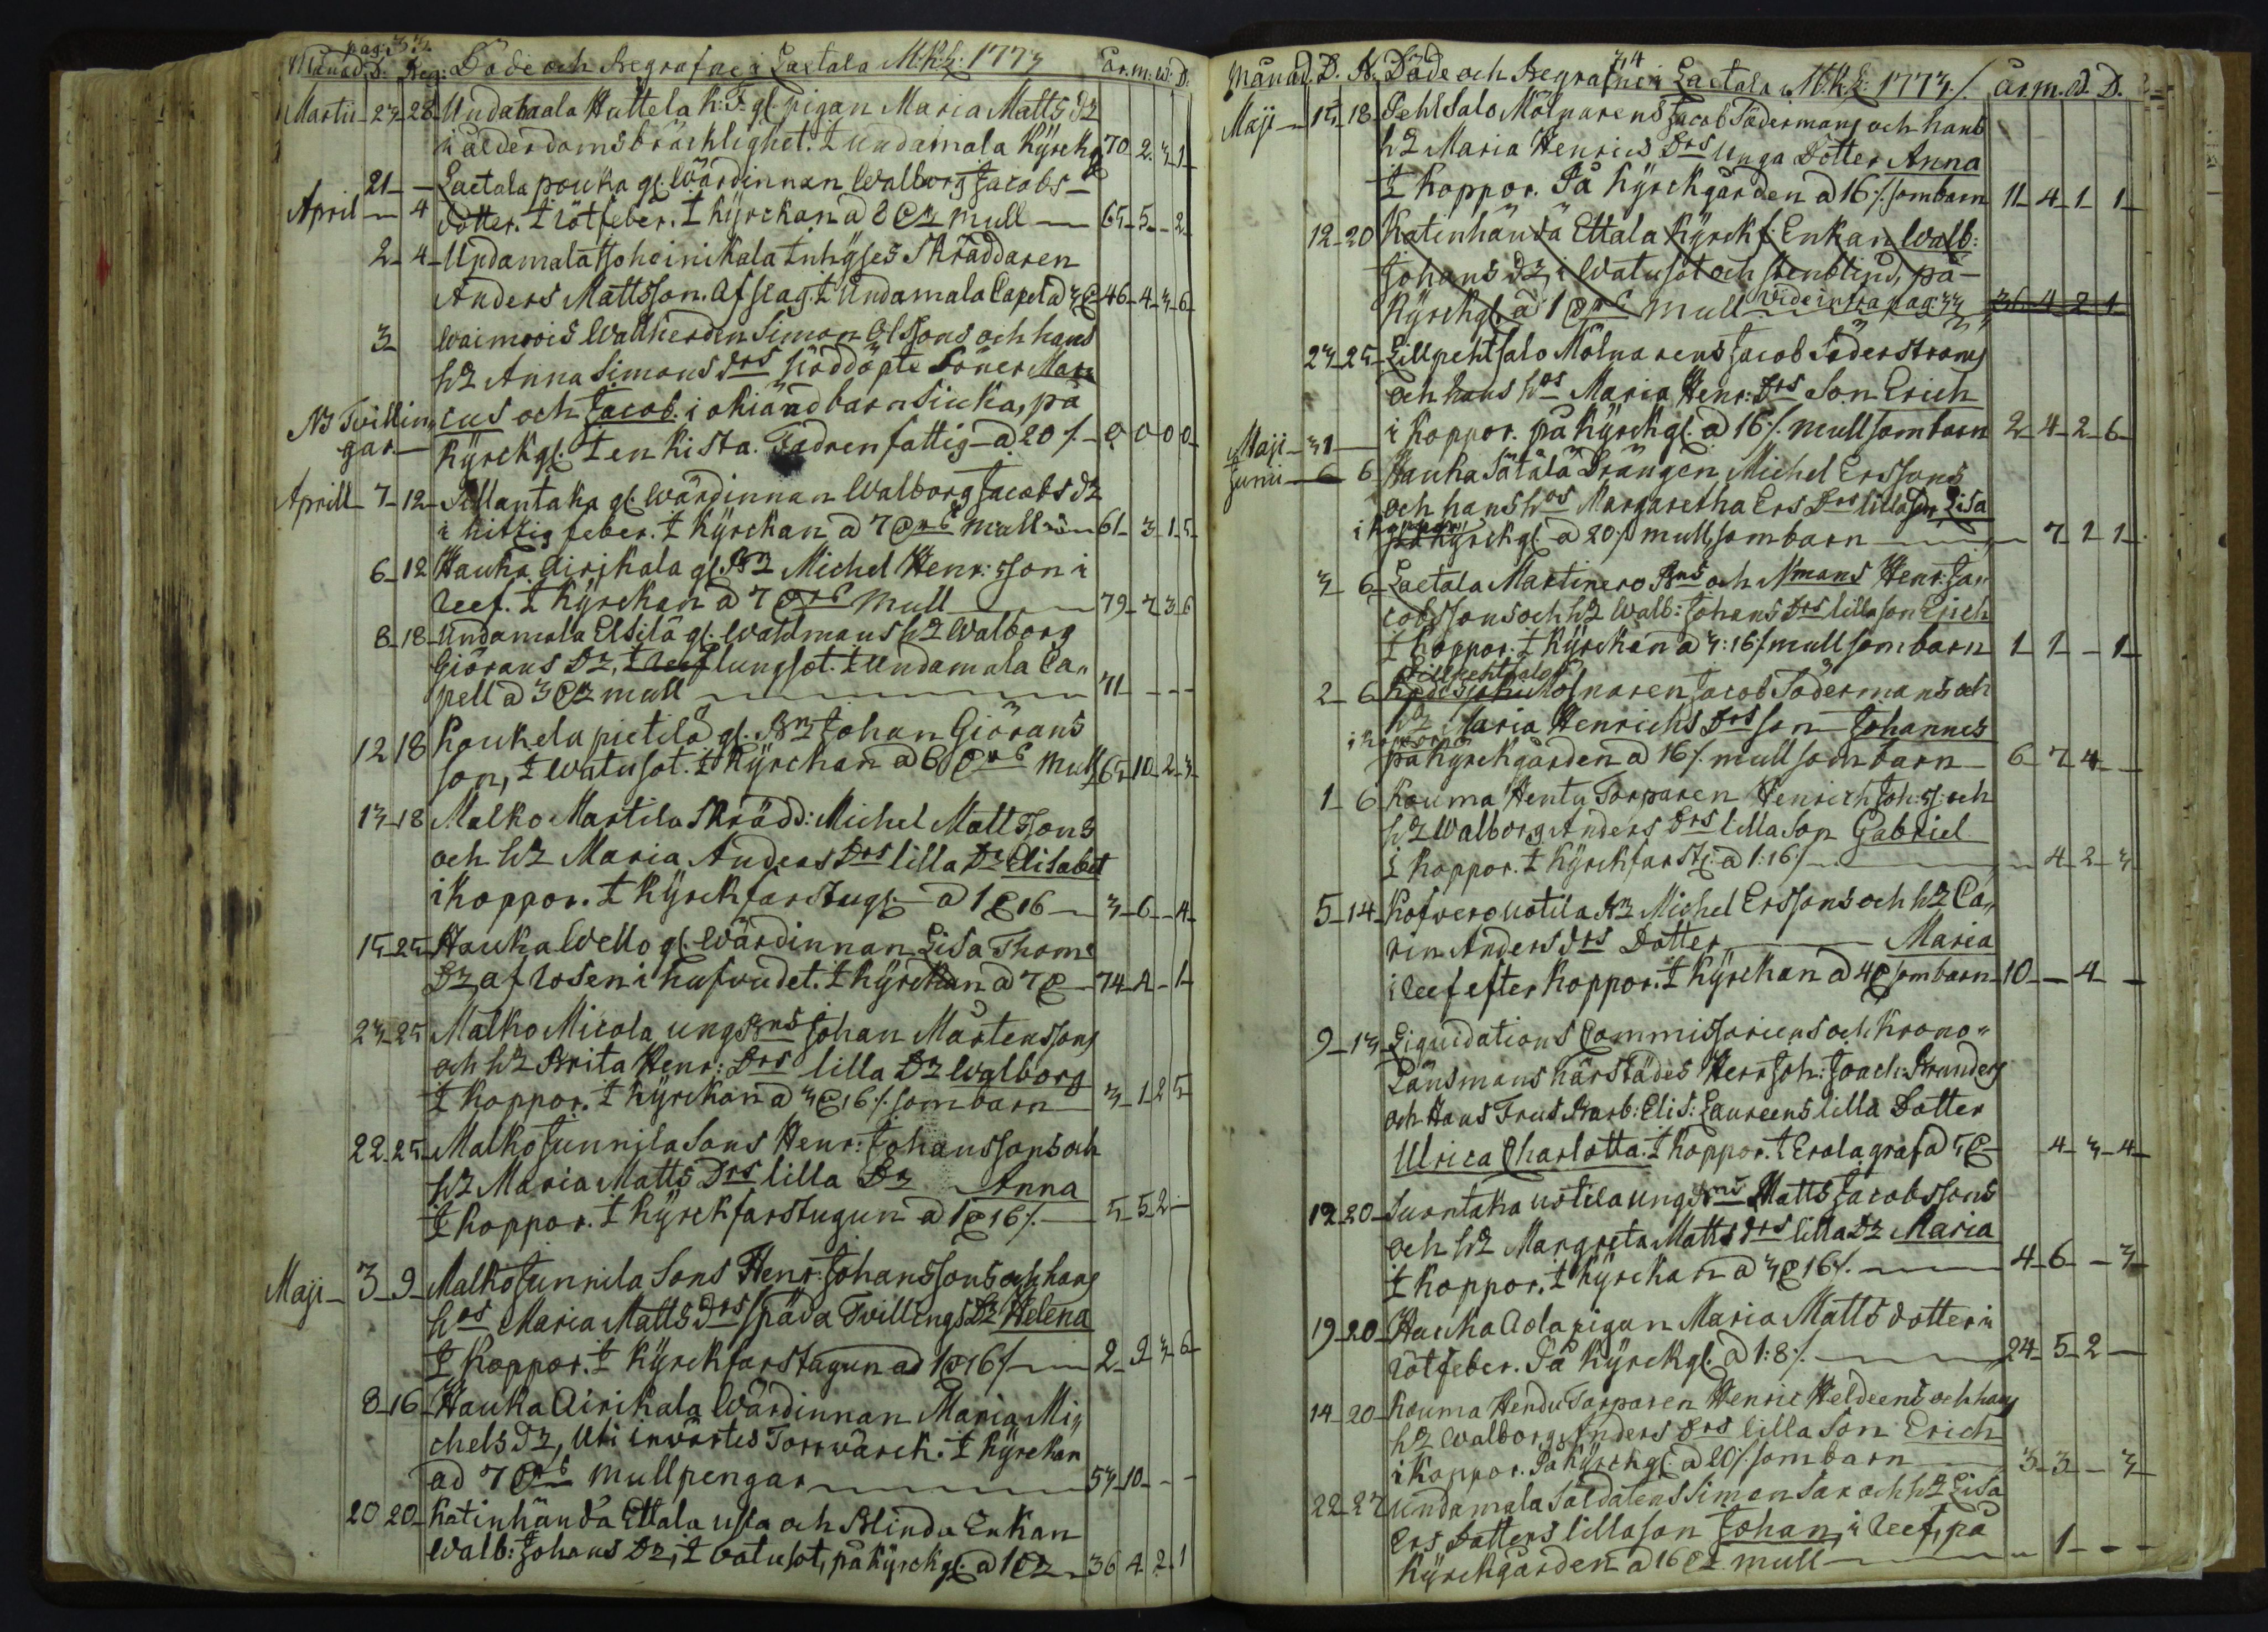 pag: 33.
Månad. D. Beg: Döde och Begrafne i Laetala M.K.S: 1773 år. m. w. D.
Martii 23 28 Undamala Huttela k: F. gl. pigan Maria Matts Dr
i ålderdoms bräcklighet. I Undamala Kyrckg 70 2. 3 1
21 – Laetala pouka gl. Wärdinnan Walborg Jacobs
April 4 dotter. I rötfeber. I Kyrckan a 8 mull 65 5 2
2 4 Undamala Inhyses Skräddaren
Anders Mattsson. Af slag. I Undamala Capel a 3 46 4 3 6
3 Wallherden Simon Olssons och hans
h Anna Simons drs nöddöpte Söner Mar
NB Tvillin cus och Jacob. i okiänd barnsiuka, på
gar Kyrckgl. I en kista. Fadren fattig a 20 0 0 0 0
Aprill 7 12 gl. Wärdinnan Walborg Jacobs dr
i hitzig feber. I Kyrckan a 7 mull 61 3 1 5
6 12 Hauka Airikala gl. Michel Henr: sson i
Reef. I Kyrckan a 7 mull 79 7 3 6
8 18 Undamala Elsilä gl. Wahlmans h Walborg
Giörans Dr, I lungsot. I Undamala Ca
pell a 3 mull 71 - - -
12 18 Koukela pietilä gl. Johan Giörans
son, I Watusot. I Kyrckan a 6 mull 65 10 2 3
13 18 Malko Martila Skrädd: Michel Mattssons
och h Maria Anders Drs lilla Dr Elisabet
i koppor. I Kyrckfarstugl a 1 16 3 6 4
15 25 Hauka Wello gl. Wärdinnan Lisa Thom
Dr af rosen i hufvudet. I Kyrckan a 7 74 2 1
23 25 Malko Micola ung Johan Mårtenssons
och h Brita Henr: Drs lilla Dr Walborg
I koppor. I Kyrckan a 3 16 som barn 3 1 2 5
22 25 Malko Junnila Sons Henr: Johanssons och
h Maria Matts Drs lilla Dr Anna
I koppor. I Kyrckfarstugun a 1 16 5 5 2
Maji 3 9 Malko Junnila Sons Henr: Johanssons och hans
hos Maria Matts drs späda Tvillings Dr Helena
I koppor. I Kyrckfarstugun ad 1 16 2 9 3 6
8 16 Hauka Airikala Wärdinnan Maria Mi
chels Dr, Uti invärtes Torrwärck. I Kyrckan
ad 7 mullpengar 57 10 - -
20 20 Katinhändä Ettala usla och Blinda Enkan
Walb: Johans Dr, I vatusot, på Kyrckgl. a 1 36 4 2 1
34
Månad. D. B. Döde och Begrafne i Laetala M.K.S: 1773 år. m. W. D.
Maji 15 18 Pehlsalo Mölnarens Jacob Södermans och hans
h Maria Henrics Drs Unga Dotter Anna
I koppor. På Kyrckgården a 16 som barn 11 4 1 1
12 20 Katinhändä Ettala Kyrckf: Enkan Walb:
Johans Dr, i Watusot och stenblind, på
Kyrckgl. a 1 mull vide infra pag: 33 36 4 2 1
23 25 Lillpehlsalo Mölnarens Jacob Söderströms
och hans hos Maria Henr: Drs Son Erich
Maji 31 i koppor. på Kyrckgl. a 16 mull som barn 2 4 2 6
Junii 6 6 Hauka Sätälä Drängen Michel Erssons
och hans hos Margaretha Ers Drs lilla Lisa
i koppor Kyrckgl a 20 mull, som barn 7 1 1
3 6 Laetala Martinero och Nmans Henr: Ja
cobssons och h Walb: Johans Drs lilla son Erich
I koppor. I Kyrckan a 3: 16 mull som barn 1 1 - 1
Lillpehlsalo
2 6 Mölnaren Jacob Södermans och
h Maria Henrichs Drs son Johannes
i koppor
på Kyrckgården a 16 mull som barn 6 7 4
1 6 Kouma Hentu Torparen Henrich Joh: s: och
h Walborg Anders Drs lilla son Gabriel
I koppor. I Kyrckfarstg. a 1: 16 4 2 3
5 14 Kofvero uotila Michel Erssons och h Ca
rin Anders drs Dotter Maria
i Reef efter koppor. I Kyrckan a 4 som barn 10 4
9 13 Liquidations Commissariens och Krono
Länsmans härstädes Herr Joh: Joach: Branders
och Hans Frus Barb: Elis: Laureens lilla Dotter
Ulrica Charlotta. I koppor. I Erola graf a 5 4 3 4
12 20 Suontaka ustila ung Matts Jacobssons
och h Margreta Matts drs lilla Dr Maria
I koppor. I Kyrckan a 3 16 4 6 3
19 20 Hauka Aola pigan Maria Matts dotter i
rötfeber. På Kyrckgl. a 1: 8 24 5 2
14 20 Kouma Hendu Torparen Henric Heldeens och hans
h Walborg Anders Drs lilla Son Erich
i koppor. På Kyrckgl. a 20 som barn 3 3 3
22 27 Undamala Soldatens Simon Sax och h Lisa
Ers Dotters lilla son Johan, i Reef, på
Kyrckgården a 16 mull 1 - - -